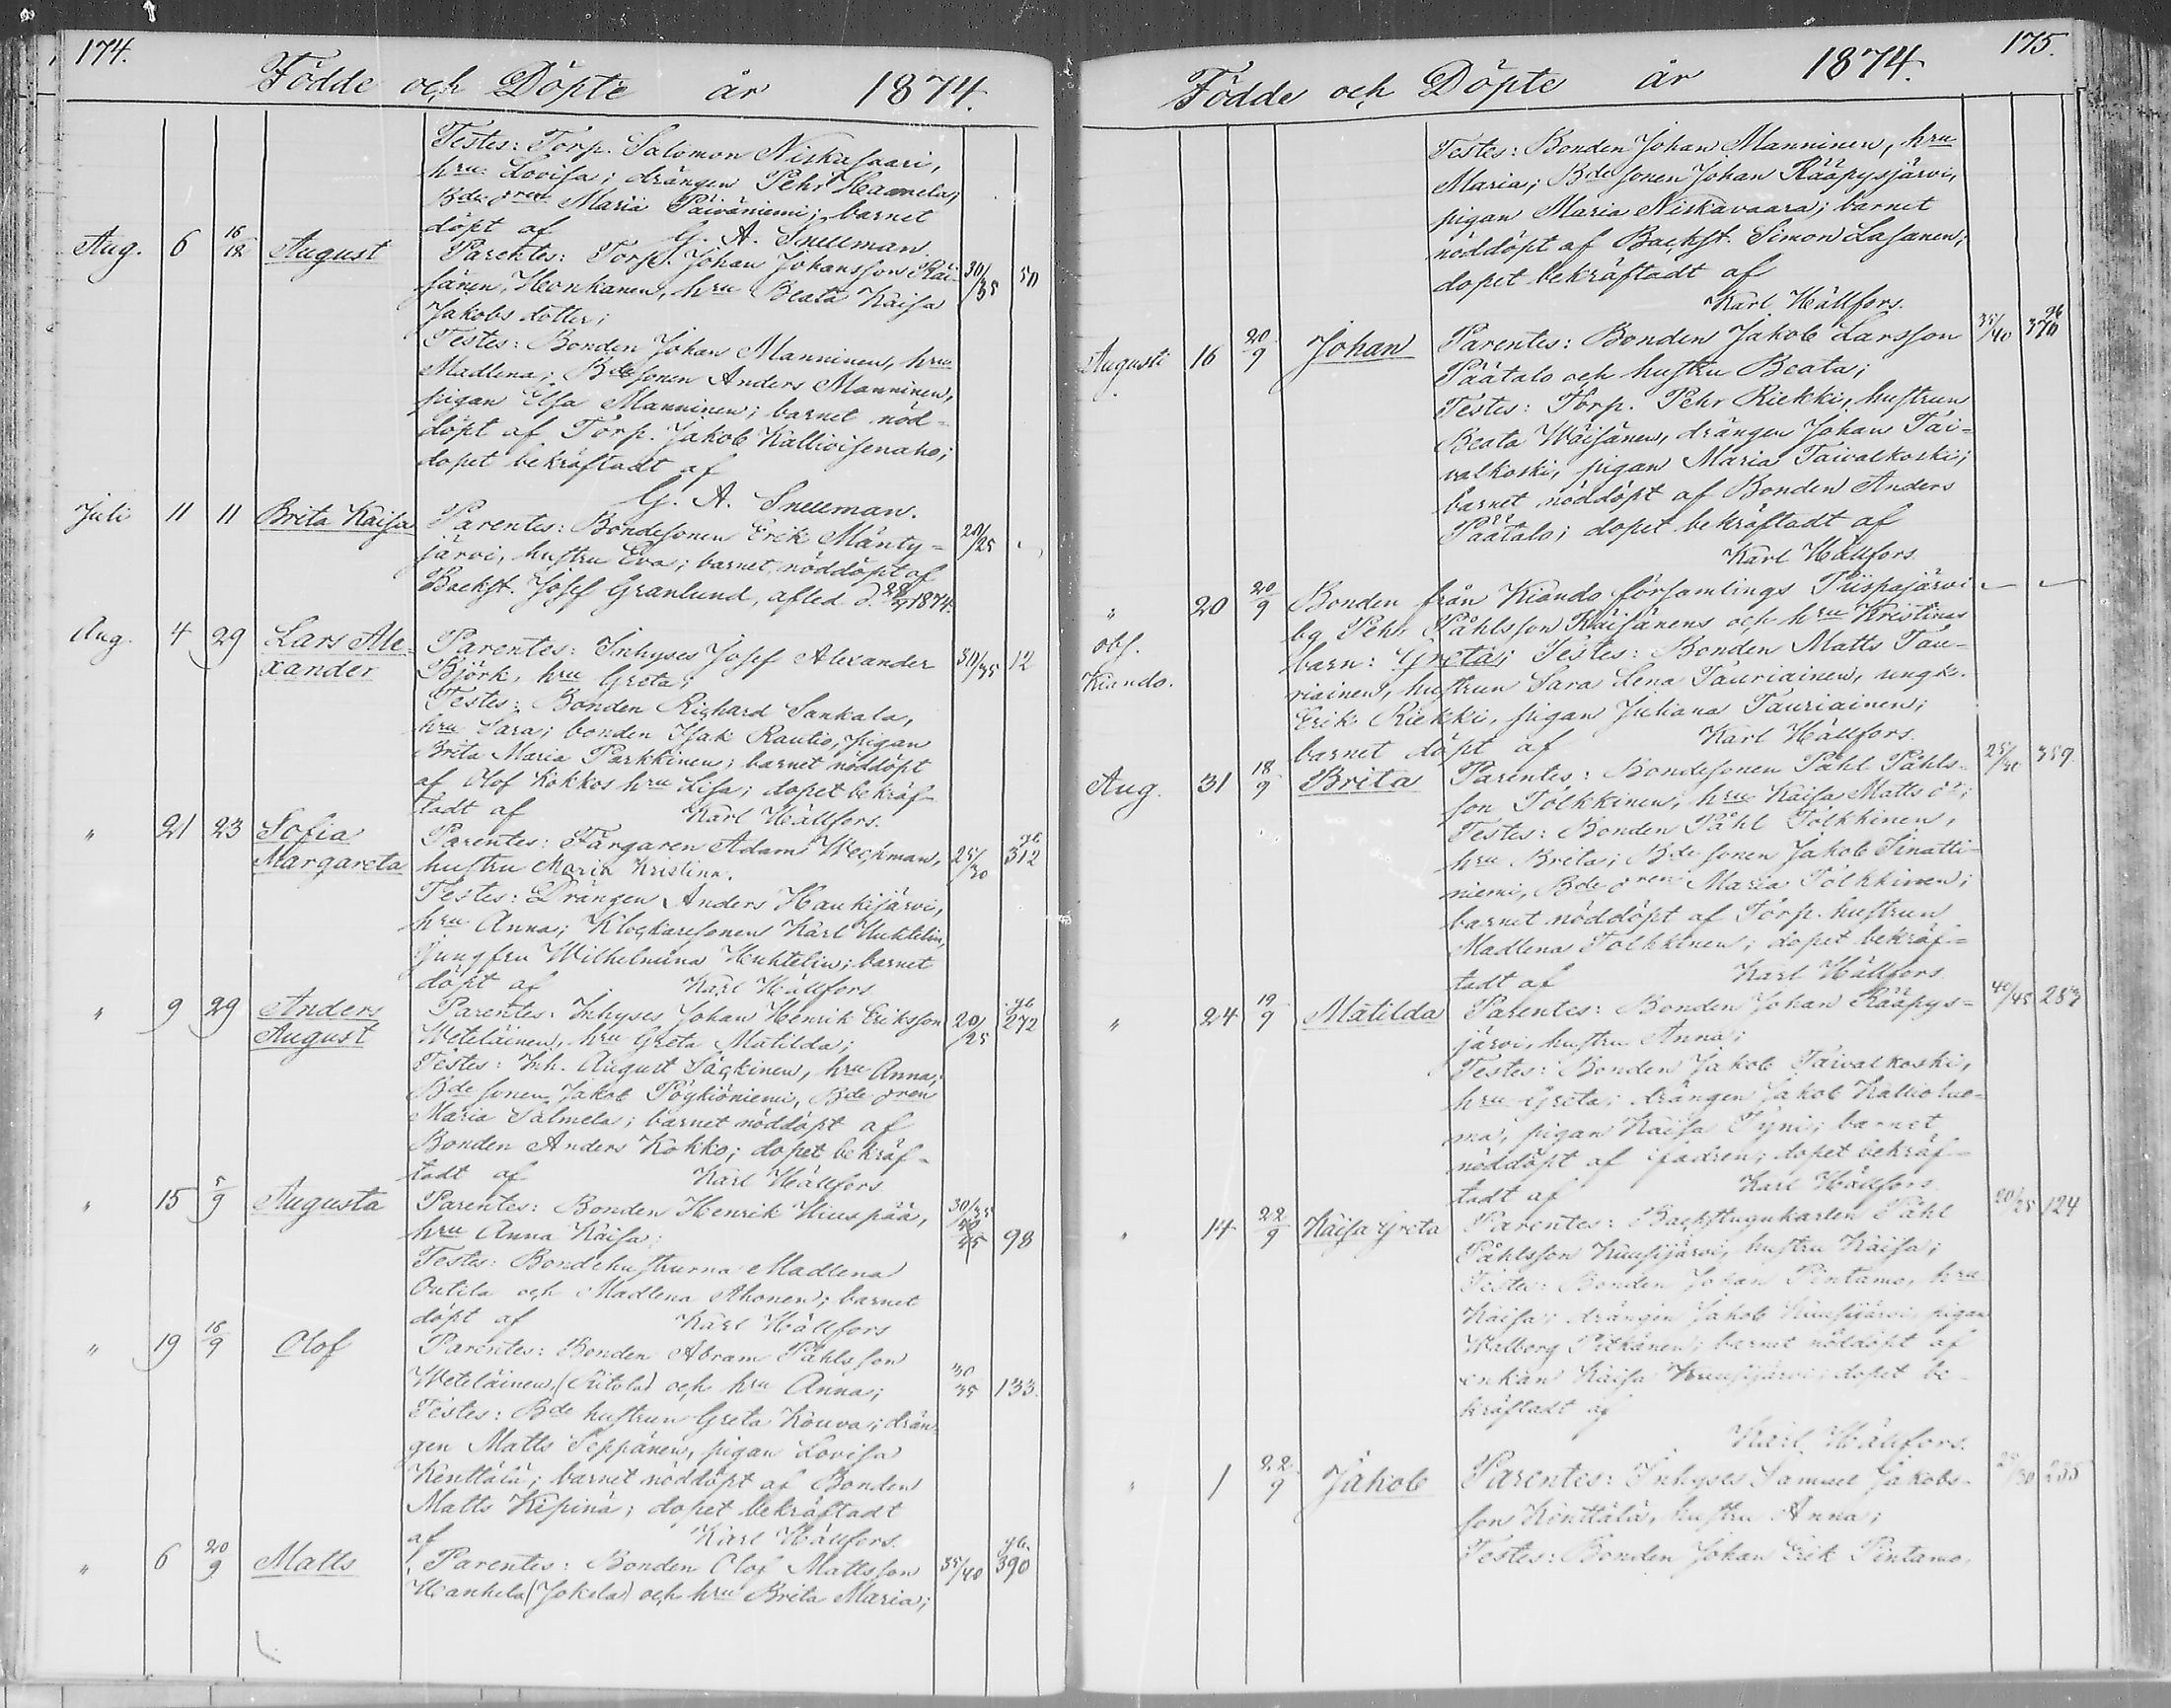 174.
Födde och Döpte år 1874.
Testes: Torp. Salomon Niskasaari,
hru: Lovisa; drängen Pehr Haamela;
Bde dren Maria Päiväniemi; barnet
döpt af G. A. Snellman.
Aug. 6 16/18 August Parentes: Torp. Johan Johansson Räi- 30/35 50
sänen, Honkanen, hru Beata Kaisa
Jakobs dotter;
Testes: Bonden Johan Manninen, hru
Madlena; Bde sonen Anders Manninen,
pigan Elsa Manninen; barnet nöd-
döpt af Torp. Jakob Kallioisenaho;
dopet bekräftadt af
G. A. Snellman.
Juli 11 11 Brita Kaisa Parentes: Bondesonen Erik Mänty- 20/25
järvi, hustru Eva; barnet nöddöpt af
Backst. Josef Granlund, afled d. 1874.
Aug. 4 29 Lars Ale- Parentes: Inhyses Josef Alexander 30/35 12
xander Björk, hru Greta;
Testes: Bonden Richard Sankala,
hru Sara; bonden Isak Rautio, pigan
Brita Maria Parkkinen; barnet nöddöpt
af Olof Kokkos hru Lisa; dopet bekräf-
tadt af Karl Hällfors.
" 21 23 Sofia Parentes: Färgaren Adam Weckman, 25/30 gb. 312
Margareta hustru Maria Kristina.
Testes: Drängen Anders Haukijärvi,
hru Anna; Klockaresonen Karl Huhtelin,
jungfru Wilhelmina Huhtelin; barnet
döpt af Karl Hällfors
" 9 29 Anders Parentes: Inhyses Johan Henrik Eriksson 20/25 gb 272
August Weteläinen, hru Greta Matilda;
Testes: Inh. August Säckinen, hru Anna;
Bde sonen Jakob Pöykiöniemi, Bde dren
Maria Salmela; barnet nöddöpt af
Bonden Anders Kokko; dopet bekräf-
tadt af Karl Hällfors
" 15 5/9 Augusta Parentes: Bonden Henrik Hiuspää, 30/35
hru Anna Kaisa; 40/45 98
Testes: Bondehustrurna Madlena
Outila och Madlena Ahonen; barnet
döpt af Karl Hällfors
" 19 16/9 Olof Parentes: Bonden Abram Påhlsson
Weteläinen, (Ritola) och hru Anna; 30/35 133.
Testes: Bde hustrun Greta Kouva; drän-
gen Matts Seppänen, pigan Lovisa
Kenttälä; barnet nöddöpt af Bonden
Matts Kipinä; dopet bekräftadt
af Karl Hällfors.
" 6 20/9 Matts Parentes: Bonden Olof Mattsson 35/40 gb. 390
Hanhela (Jokela) och hru Brita Maria;
175.
Födde och Döpte år 1874.
Testes: Bonden Johan Manninen, hru
Maria; Bde sonen Johan Rääpysjärvi,
pigan Maria Niskavaara; barnet
nöddöpt af Backst. Simon Lasanen;
dopet bekräftadt af
Karl Hällfors.
Augusti 16 20/9 Johan Parentes: Bonden Jakob Larsson 35/40 gb 370
Päätalo och hustru Beata;
Testes: Torp. Pehr Riekki, hustrun
Beata Wäisänen, drängen Johan Tai-
valkoski, pigan Maria Taivalkoski;
barnet nöddöpt af Bonden Anders
Päätalo; dopet bekräftadt af
Karl Hällfors.
" 20 20/9 Bonden från Kiando församlings Piispajärvi
obs. by Pehr Påhlsson Räisänens och hru Kristinas
Kiando. barn: Greta; Testes: Bonden Matts Tau-
riainen, hustrun Sara Lena Tauriainen, ungk.
Erik Riekki, pigan Juliana Tauriainen;
barnet döpt af Karl Hällfors.
Aug. 31 18/9 Brita Parentes: Bondesonen Påhl Påhls- 25/30 359.
son Tolkkinen, hru Kaisa Matts dr;
Testes: Bonden Påhl Tolkkinen,
hru Brita; Bde sonen Jakob Tinatti-
niemi, Bde dren Maria Tolkkinen;
barnet nöddöpt af Torp. hustrun
Madlena Tolkkinen; dopet bekräf-
tadt af Karl Hällfors.
" 24 19/9 Matilda Parentes: Bonden Johan Rääpys- 40/45 283
järvi, hustru Anna;
Testes: Bonden Jakob Taivalkoski,
hru Greta; drängen Jakob Kallioluo-
ma, pigan Kaisa Tyni; barnet
nöddöpt af fadren; dopet bekräf-
tadt af Karl Hällfors.
" 14 22/9 Kaisa Greta Parentes: Backstugukarlen Påhl 20/25 124
Påhlsson Kuusijärvi, hustru Kaisa;
Testes: Bonden Johan Pintamo, hru
Kaisa; drängen Jakob Kuusijärvi, pigan
Walborg Pitkänen; barnet nöddöpt af
enkan Kaisa Kuusijärvi; dopet be-
kräftadt af
Karl Hällfors.
" 1 22/9 Jakob Parentes: Inhyses Samuel Jakobs-
son Kenttälä, hustru Anna;
Testes: Bonden Johan Erik Pintamo,